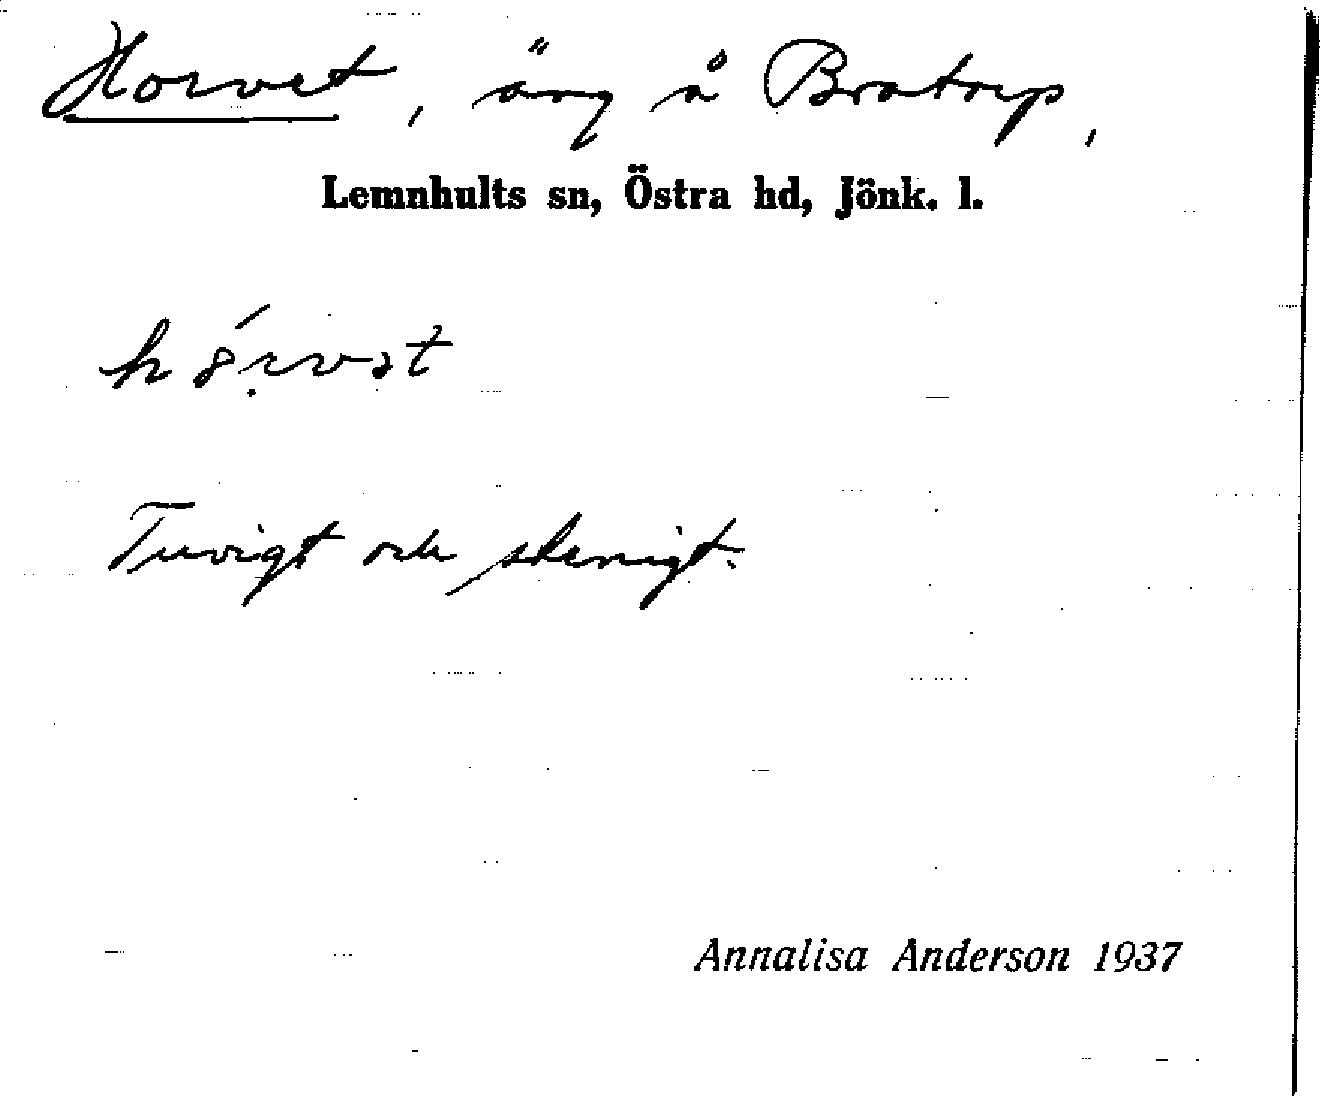 Horvet, äng å Bratorp,
Lemnhults sn, Östra hd, Jönk. l.
Tuvigt och stenigt.
Annalisa Anderson 1937